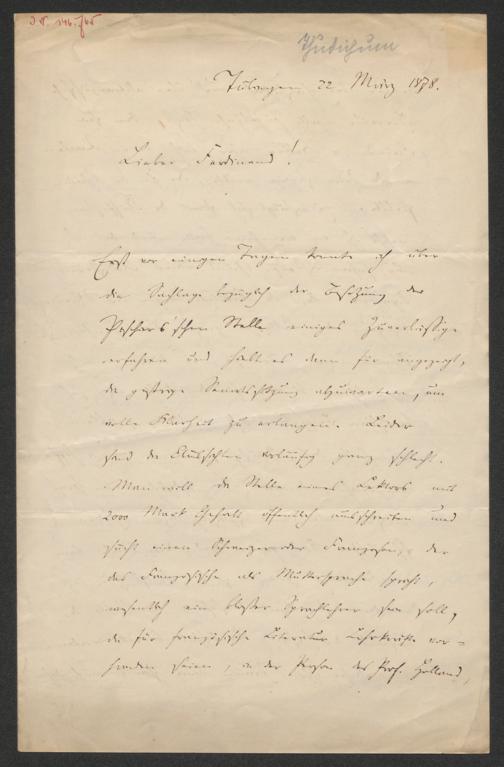 Thudichum
Tübingen 22 März 1878.
Lieber Ferdinand!
Erst vor einigen Tagen konnte ich über
die Sachlage bezüglich der Besetzung der
Peschier'schen Stelle einiges Zuverlässige
erfahren und hielt es dann für angezeigt,
die gestrige Senatssitzung abzuwarten, um
volle Klarheit zu erlangen. Leider
sind die Aussichten vorläufig ganz schlecht.
Man will die Stelle eines Lektors mit
2000 Mark Gehalt öffentlich ausschreiben und
sucht einen Schweizer oder Franzosen, der
das Französische als Muttersprache spricht,
wesentlich ein bloßer Sprachlehrer sein soll,
da für französische Literatur Lehrkräfte vor-
handen seien, in der Person des Prof. Holland,